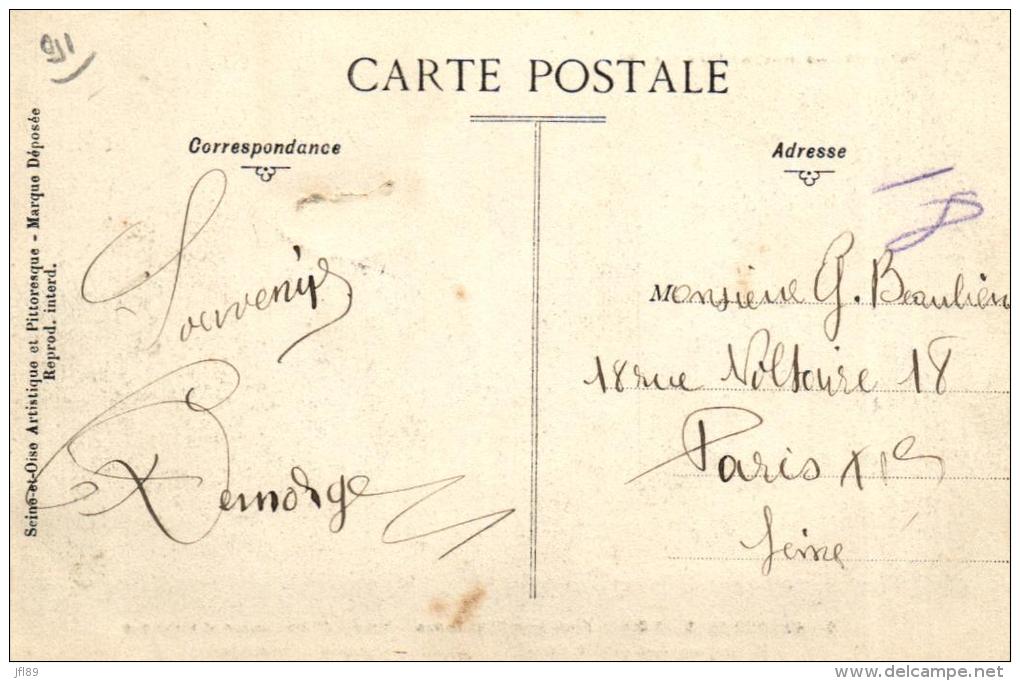 91
CARTE POSTALE
Correspondance
Adresse
Seine-et-Oise Artistique et Pittoresque - Marque Déposée
Reprod. interd.
Souvenir
8
Monsieur G. Beaulieu
18 rue Voltaire 18
Paris XIe
Seine
jfl89
www.delcampe.net